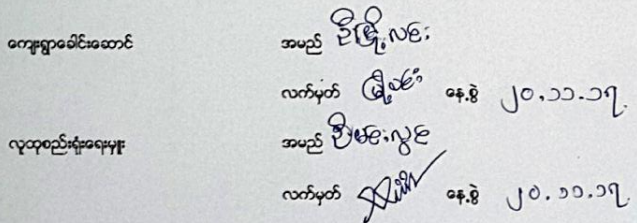 ကျေးရွာခေါင်းဆောင် အမည် ဦးမြို့လင်း
လက်မှတ် နေ့စွဲ ၂၀.၁၁.၁၇.
လူထုစည်းရုံးရေးမှူး အမည် ဦးမင်းလွင်
လက်မှတ် နေ့စွဲ ၂၀.၁၁.၁၇.